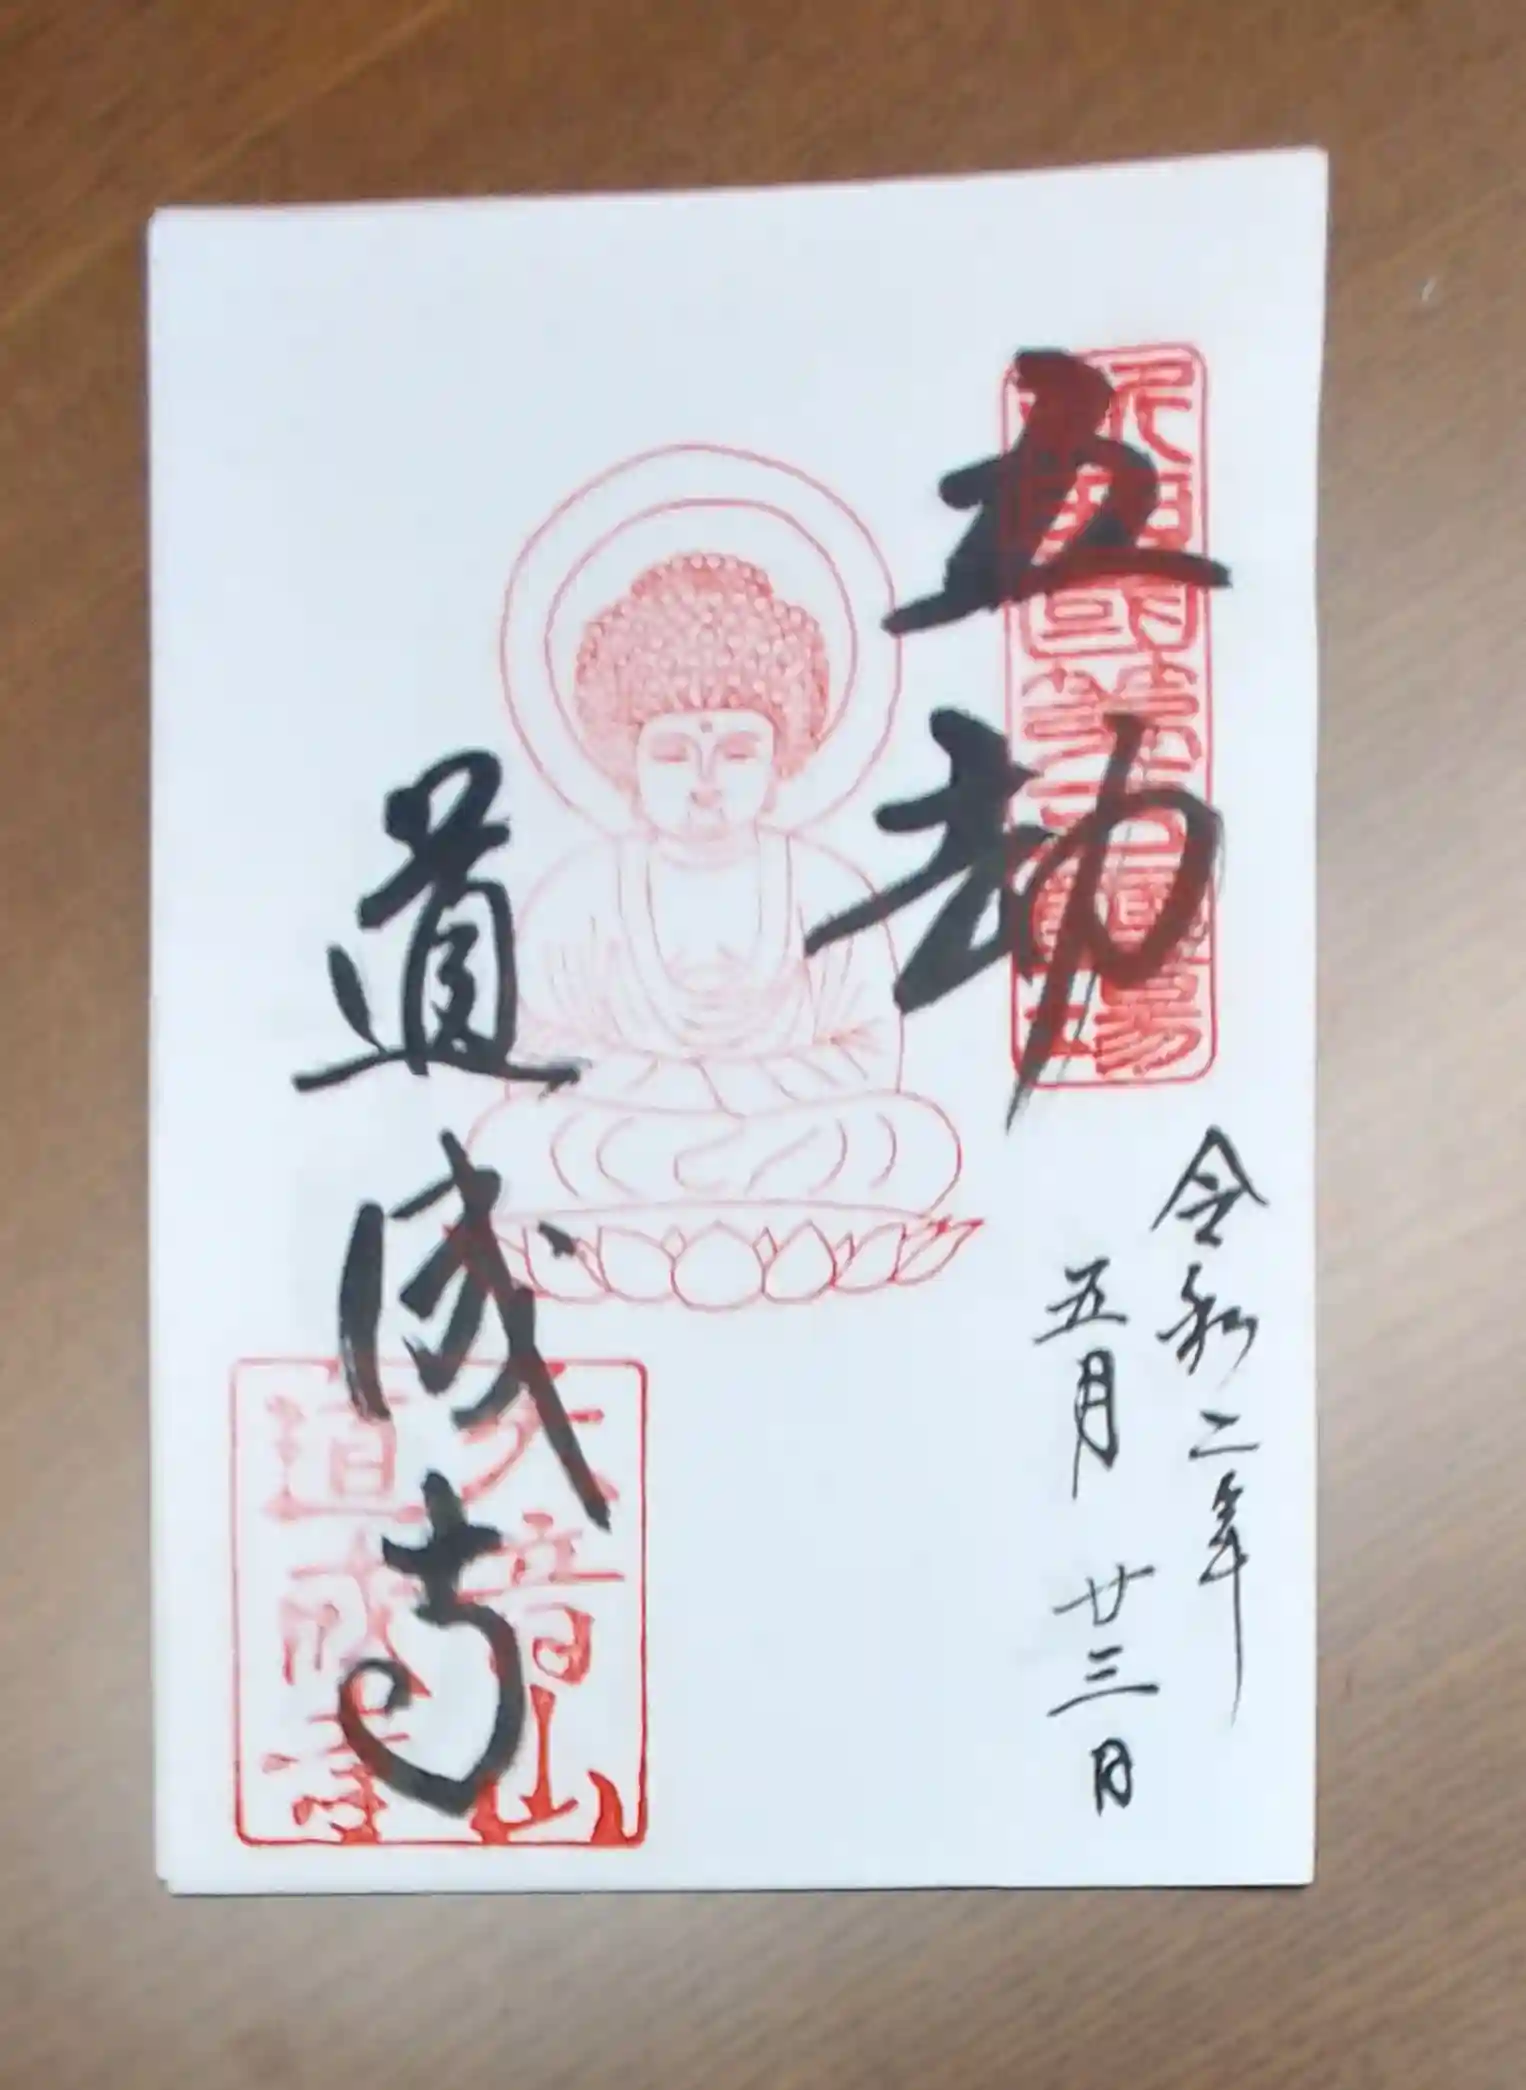 五劫
道成寺
令和二年
五月 廿三日
天音山
道成寺